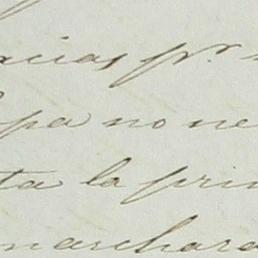 acias pr.
opa no ne
ta la prin
marchara